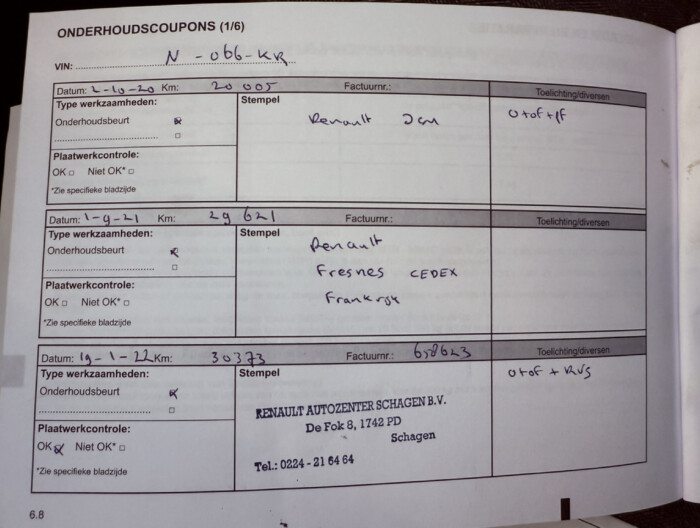 ONDERHOUDSCOUPONS (1/6)
VIN: N-066-KR
Datum: 2-10-20 Km: 20 005 Factuurnr.: Toelichting/diversen
Type werkzaamheden: Stempel
Onderhoudsbeurt Renault
Plaatwerkcontrole:
OK □ Niet OK* □
*Zie specifieke bladzijde
Datum: 1-9-21 Km: 29 621 Factuurnr.: Toelichting/diversen
Type werkzaamheden: Stempel Renault
Onderhoudsbeurt
Fresnes CEDEX
Plaatwerkcontrole:
OK □ Niet OK* □ Frankrijk
*Zie specifieke bladzijde
Datum: 19-1-22 Km: 30373 Factuurnr.: 658623 Toelichting/diversen
Type werkzaamheden: Stempel
Onderhoudsbeurt
RENAULT AUTOZENTER SCHAGEN B.V.
De Fok 8, 1742 PD
Schagen
Plaatwerkcontrole:
OK Niet OK* □
Tel.: 0224 - 21 64 64
*Zie specifieke bladzijde
6.8